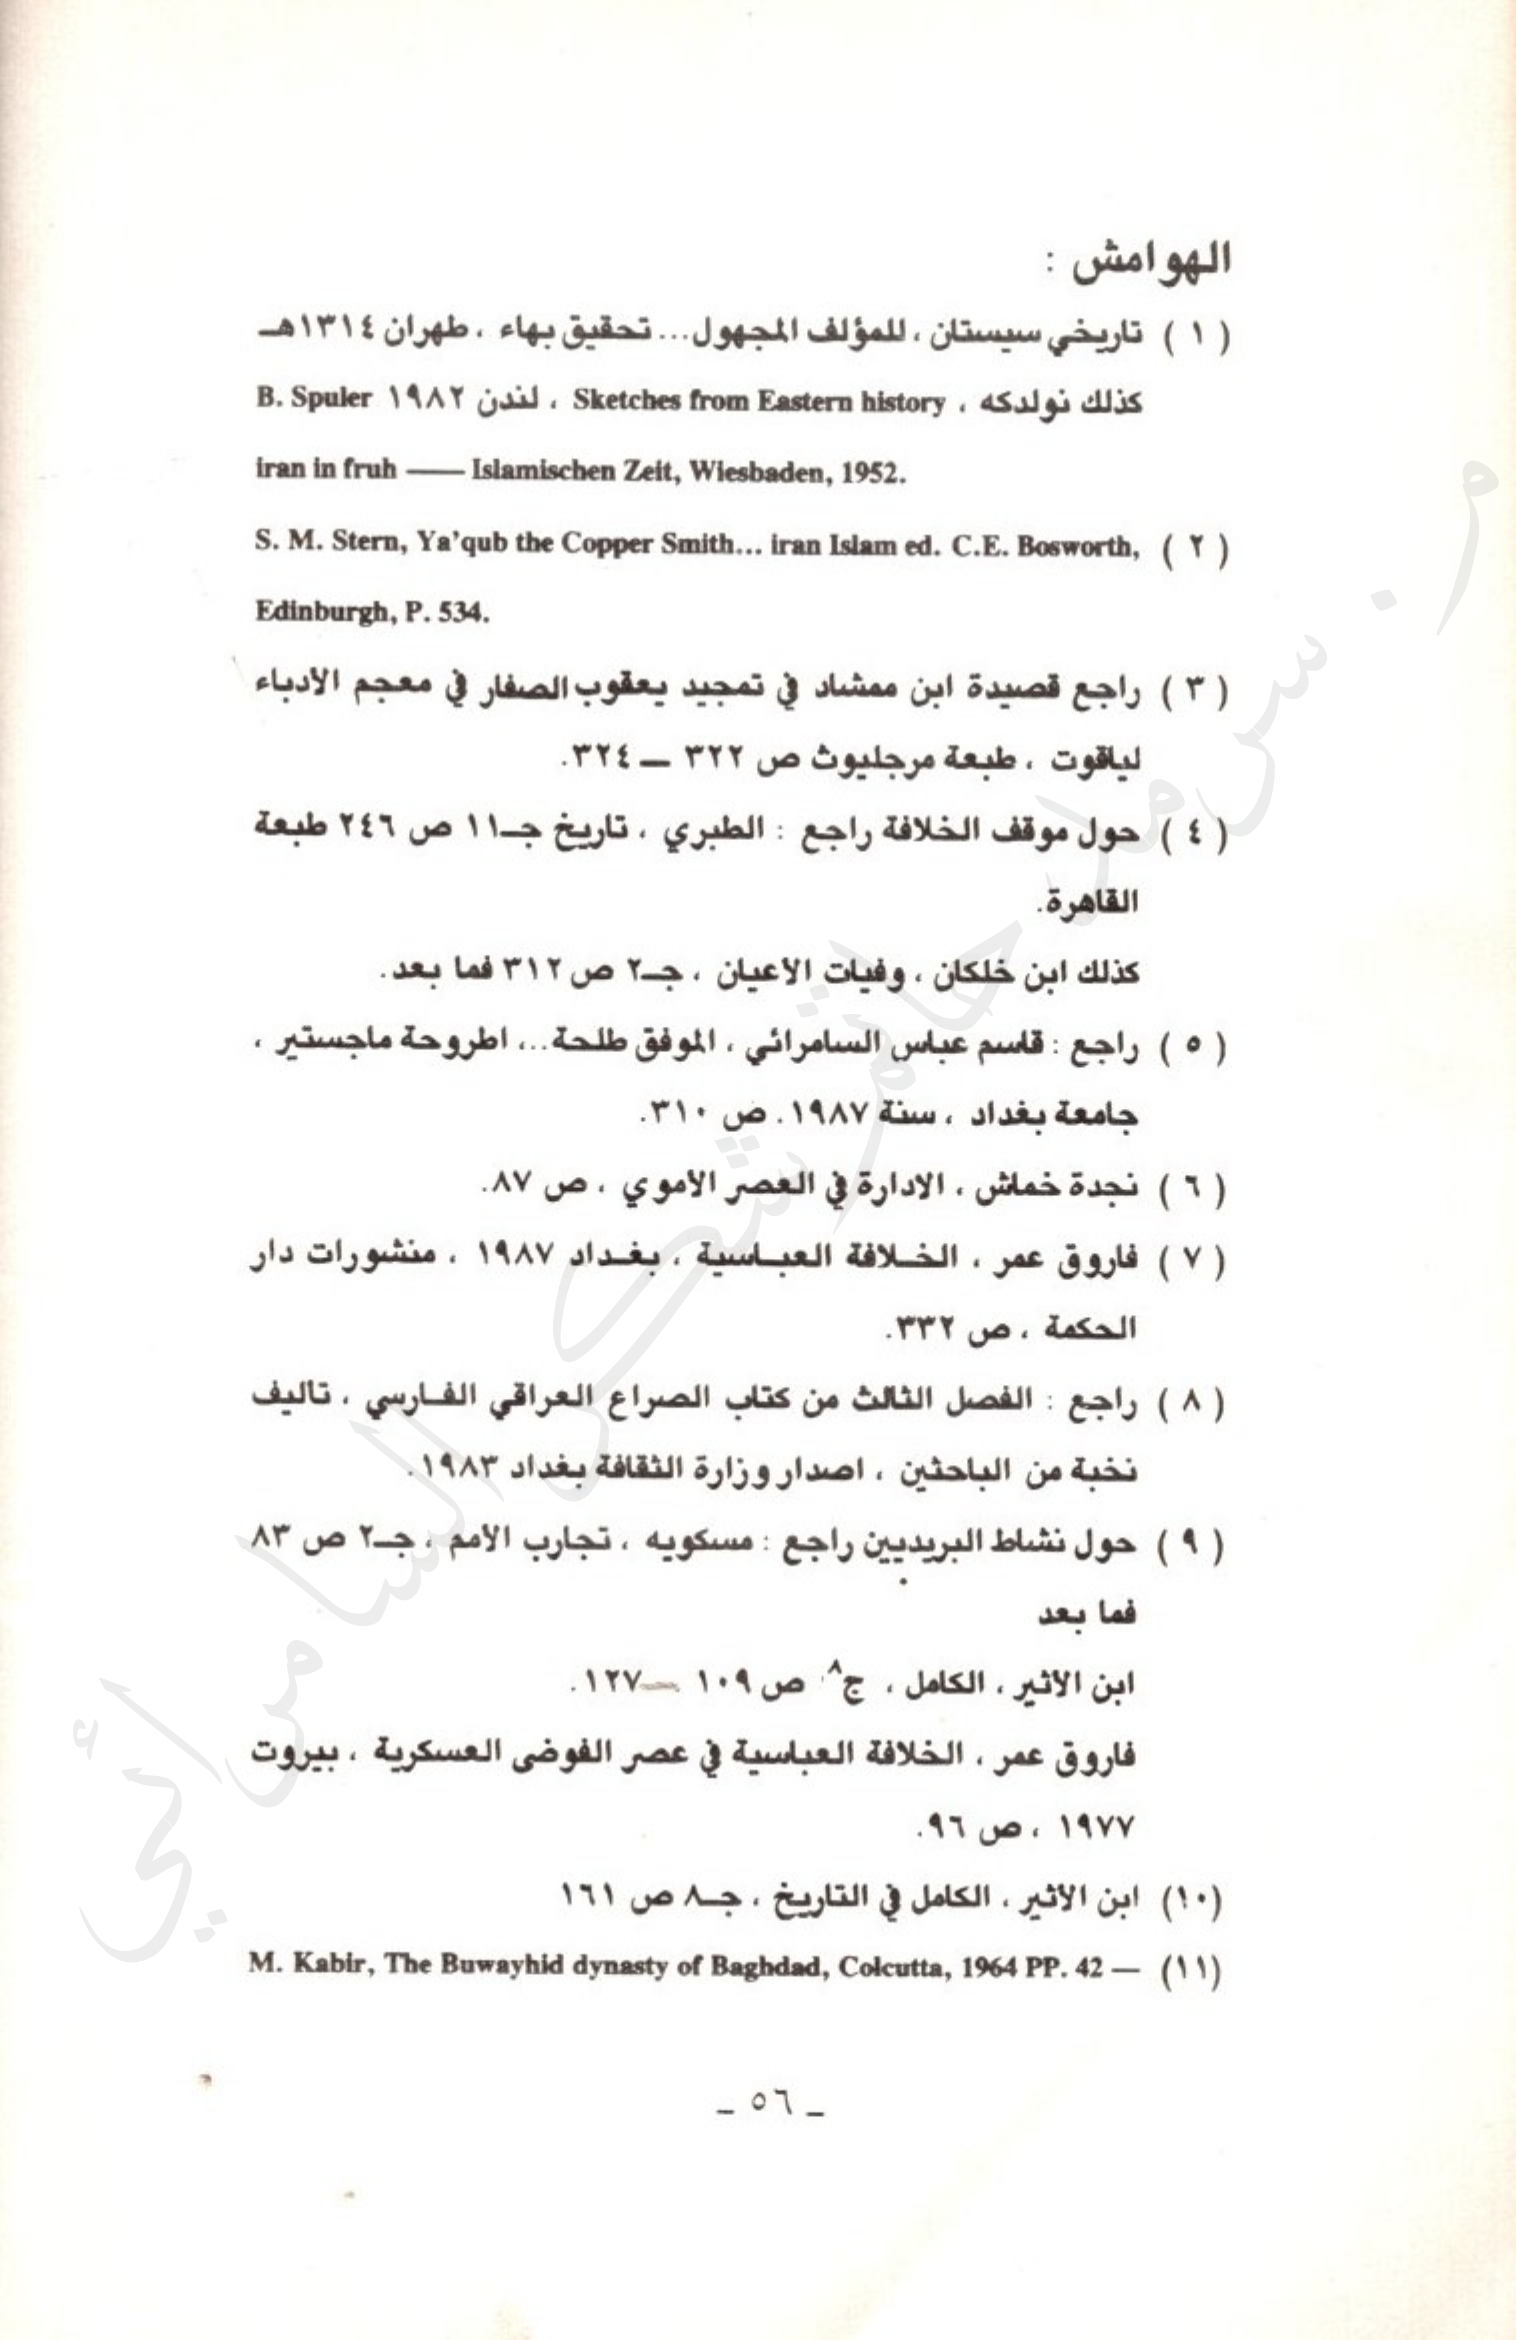 الهوامش :
( ١ ) تاريخي سيستان ، للمؤلف المجهول... تحقيق بهاء ، طهران ١٣١٤هـ
كذلك نولدكه ، Sketches from Eastern history ، لندن ١٩٨٢ B. Spuler
iran in fruh —— Islamischen Zeit, Wiesbaden, 1952.
( ٢ ) S. M. Stern, Ya'qub the Copper Smith... iran Islam ed. C.E. Bosworth,
Edinburgh, P. 534.
( ٣ ) راجع قصيدة ابن ممشاد في تمجيد يعقوب الصفار في معجم الادباء
لياقوت ، طبعة مرجليوث ص ٣٢٢ — ٣٢٤.
( ٤ ) حول موقف الخلافة راجع : الطبري ، تاريخ جـ١١ ص ٢٤٦ طبعة
القاهرة.
كذلك ابن خلكان ، وفيات الأعيان ، جـ٢ ص ٣١٢ فما بعد.
( ٥ ) راجع : قاسم عباس السامرائي ، الموفق طلحة... ، اطروحة ماجستير ،
جامعة بغداد ، سنة ١٩٨٧. ص ٣١٠.
( ٦ ) نجدة خماش ، الادارة في العصر الأموي ، ص ٨٧.
( ٧ ) فاروق عمر ، الخلافة العباسية ، بغداد ١٩٨٧ ، منشورات دار
الحكمة ، ص ٣٣٢.
( ٨ ) راجع : الفصل الثالث من كتاب الصراع العراقي الفارسي ، تاليف
نخبة من الباحثين ، اصدار وزارة الثقافة بغداد ١٩٨٣.
( ٩ ) حول نشاط البريديين راجع : مسكويه ، تجارب الأمم ، جـ٢ ص ٨٣
فما بعد
ابن الأثير ، الكامل ، ج٨ ص ١٠٩ — ١٢٧.
فاروق عمر ، الخلافة العباسية في عصر الفوضى العسكرية ، بيروت
١٩٧٧ ، ص ٩٦.
(١٠) ابن الأثير ، الكامل في التاريخ ، جـ٨ ص ١٦١
(١١) M. Kabir, The Buwayhid dynasty of Baghdad, Colcutta, 1964 PP. 42 —
ـ ٥٦ ـ
م. سرمد حاتم شكر السامرائي